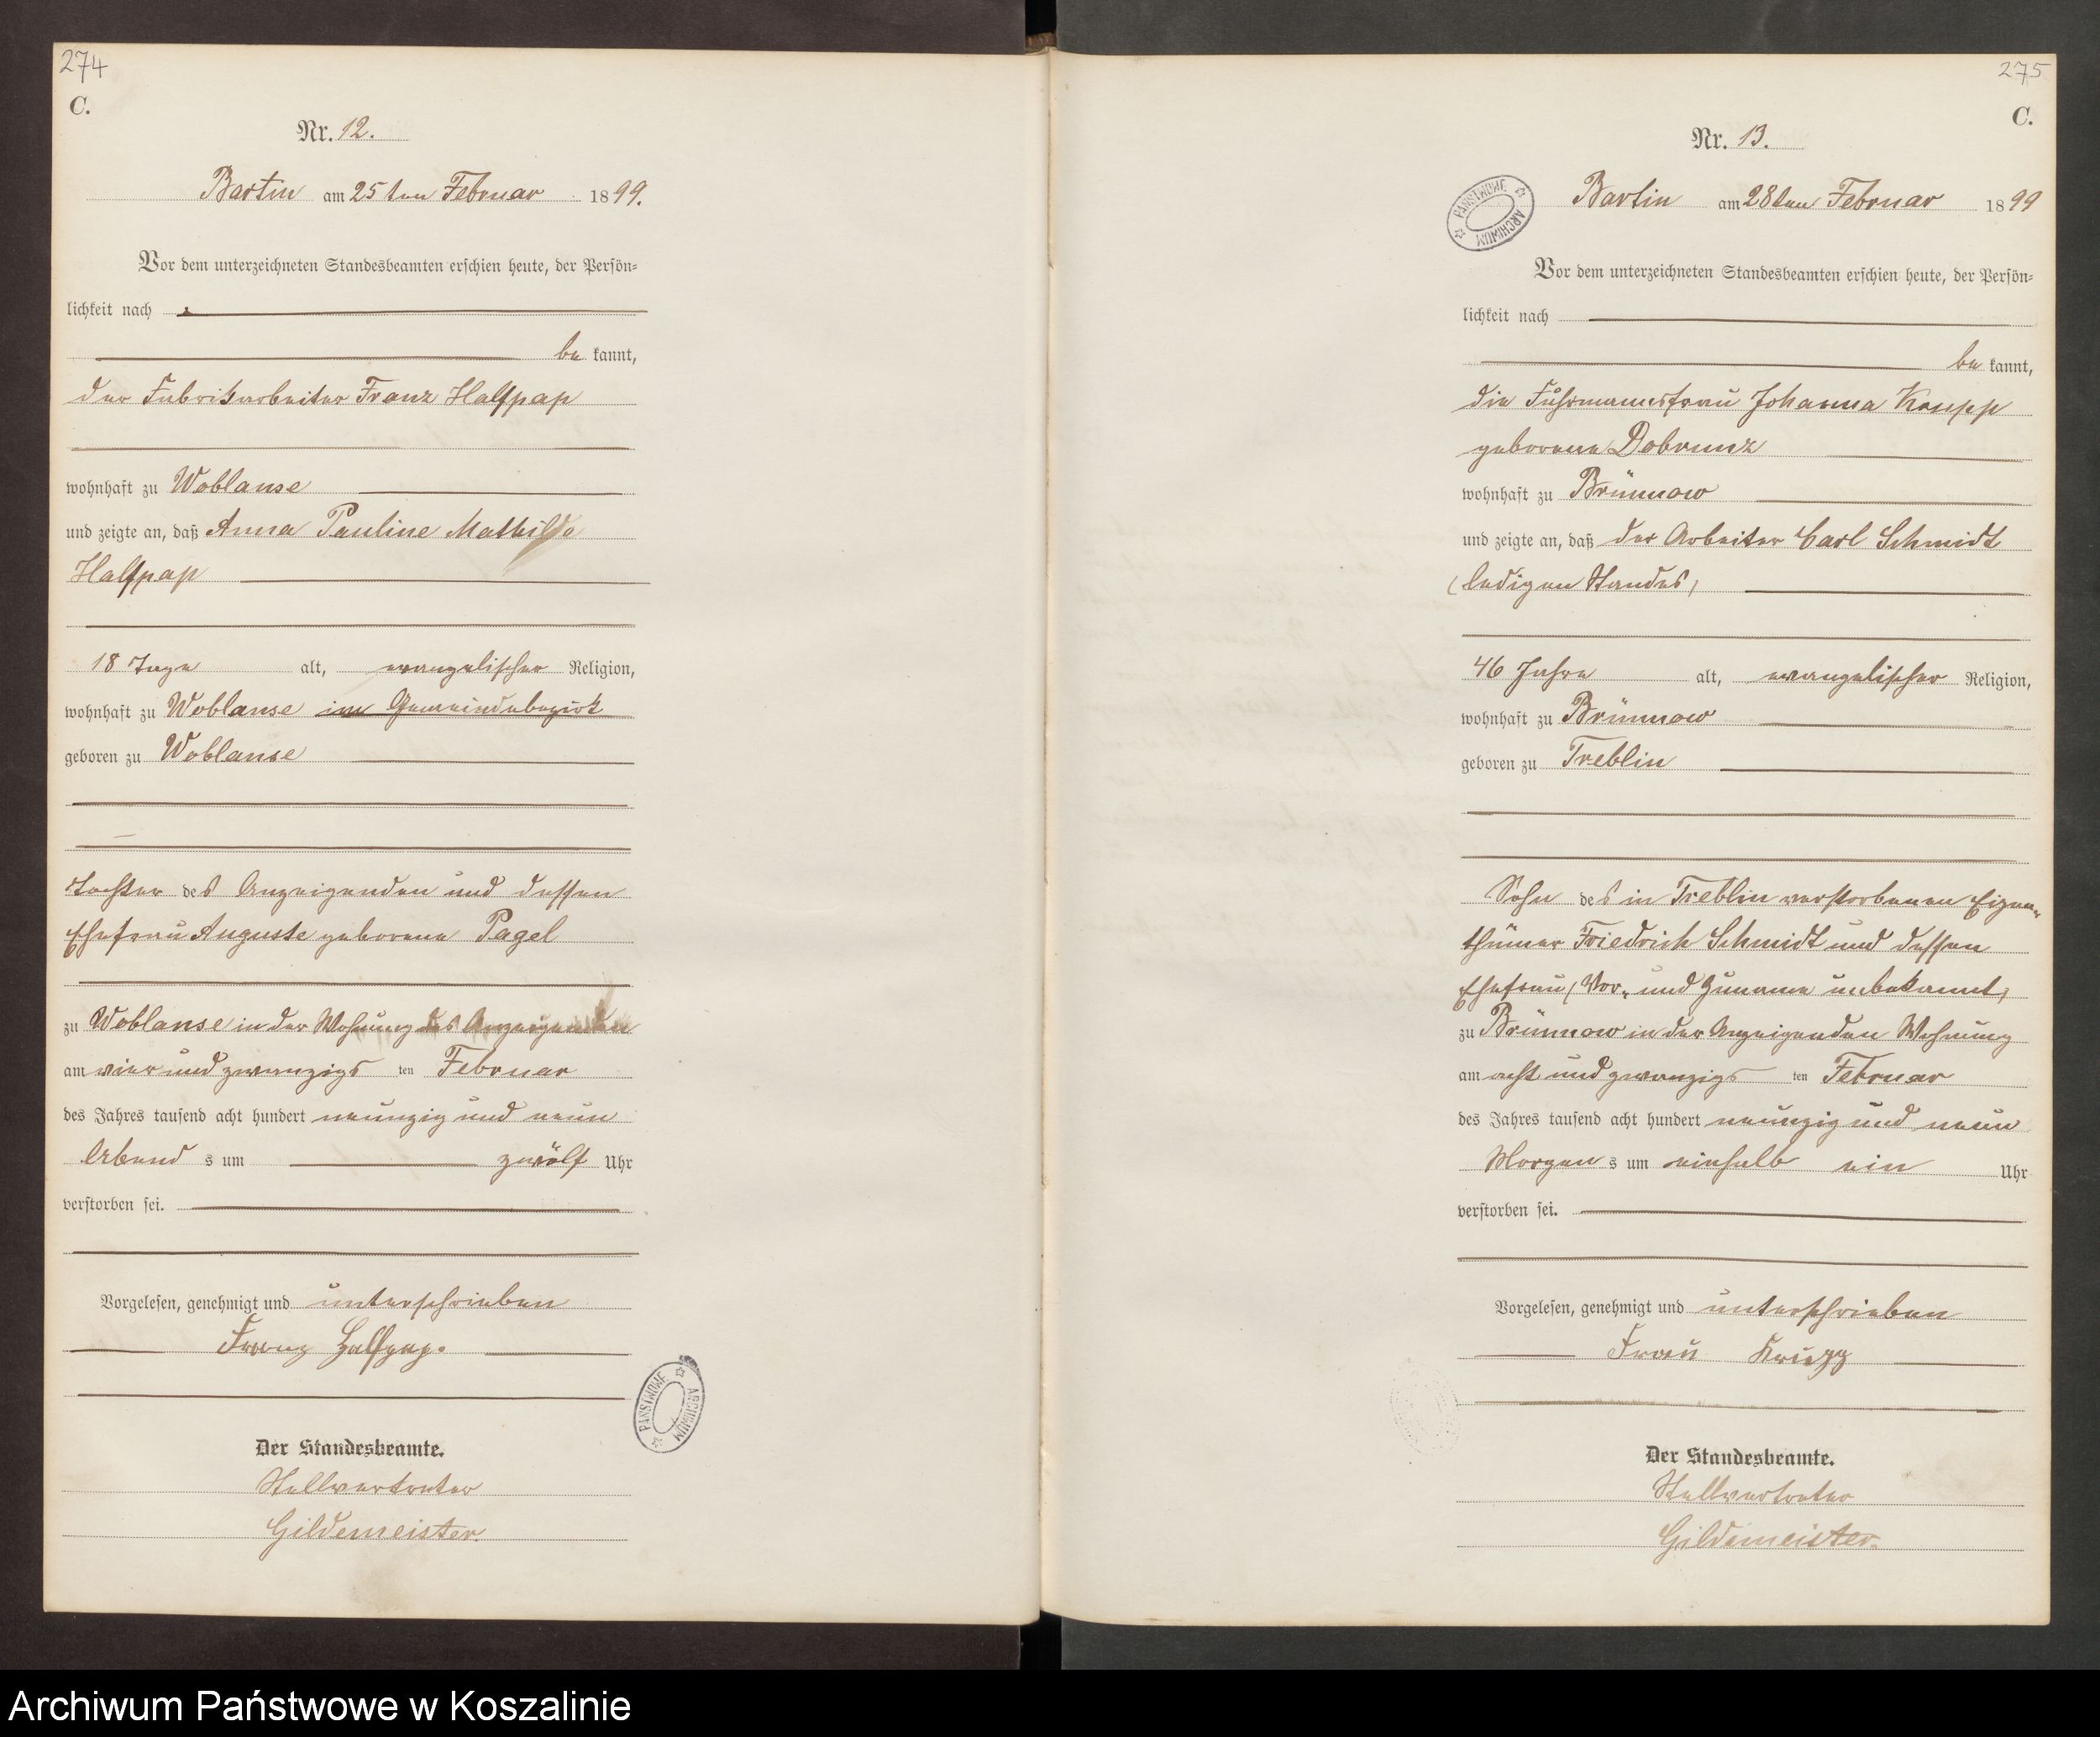 274
C.
Nr. 12.
Bartin am 25ten Februar 1899.
Vor dem unterzeichneten Standesbeamten erschien heute, der Persön-
lichkeit nach
be kannt,
der Fabrikarbeiter Franz Halfpap
wohnhaft zu Woblanse
und zeigte an, daß Anna Pauline Mathilde
Halfpap
18 Tage alt, evangelischer Religion,
wohnhaft zu Woblanse im Gemeindebezirk
geboren zu Woblanse
Tochter des Anzeigenden und dessen
Ehefrau Auguste geborene Pagel
zu Woblanse in der Wohnung des Anzeigenden
am vier und zwanzigs ten Februar
des Jahres tausend acht hundert neunzig und neun
Abend s um zwölf Uhr
verstorben sei.
Vorgelesen, genehmigt und unterschrieben
Franz Halfpap.
Der Standesbeamte.
Stellvertreter
Gildemeister.
PAŃSTWOWE ARCHIWUM
275
C.
Nr. 13.
PAŃSTWOWE ARCHIWUM
Bartin am 28ten Februar 1899
Vor dem unterzeichneten Standesbeamten erschien heute, der Persön-
lichkeit nach
be kannt,
die Fuhrmannsfrau Johanna Krupp
geborene Dobrunz
wohnhaft zu Brünnow
und zeigte an, daß der Arbeiter Carl Schmidt
(ledigen Standes)
46 Jahre alt, evangelischer Religion,
wohnhaft zu Brünnow
geboren zu Treblin
Sohn des in Treblin verstorbenen Eigen-
thümer Friedrich Schmidt und dessen
Ehefrau (Vor- und Zuname unbekannt)
zu Brünnow in der Anzeigenden Wohnung
am acht und zwanzigs ten Februar
des Jahres tausend acht hundert neunzig und neun
Morgen s um einhalb ein Uhr
verstorben sei.
Vorgelesen, genehmigt und unterschrieben
Frau Krupp
Der Standesbeamte.
Stellvertreter
Gildemeister.
Archiwum Państwowe w Koszalinie